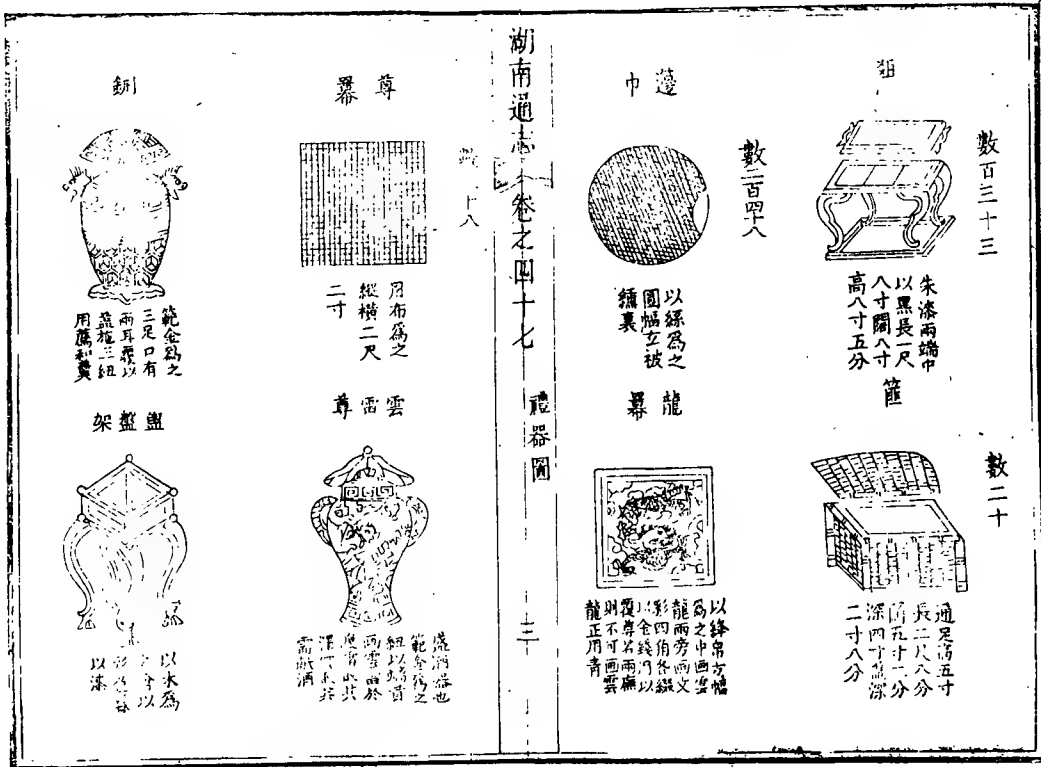 俎
數百三十三
朱漆兩端中
以黑長一尺
八寸闊八寸
高八寸五分
篚
數二十
通足高五寸
長二尺八分
闊五寸二分
深四寸蓋深
二寸八分
籩巾
數二百四十八
以綌爲之
圓幅玄被
纁裏
龍冪
以絳帛方幅
爲之中画雲
龍兩旁画文
彩四角各綴
以金錢可以
覆尊若兩廡
則不可画雲
龍正用青
湖南通志
卷之四十七
禮器圖
三
尊冪
十八
用布爲之
縱橫二尺
二寸
雲雷尊
盛酒器也
範金爲之
紐以
画雲雷於
需獻酒
鉶
範金爲之
三足口有
兩耳覆以
蓋施三紐
用薦和羹
盥盤架
以木爲
以漆